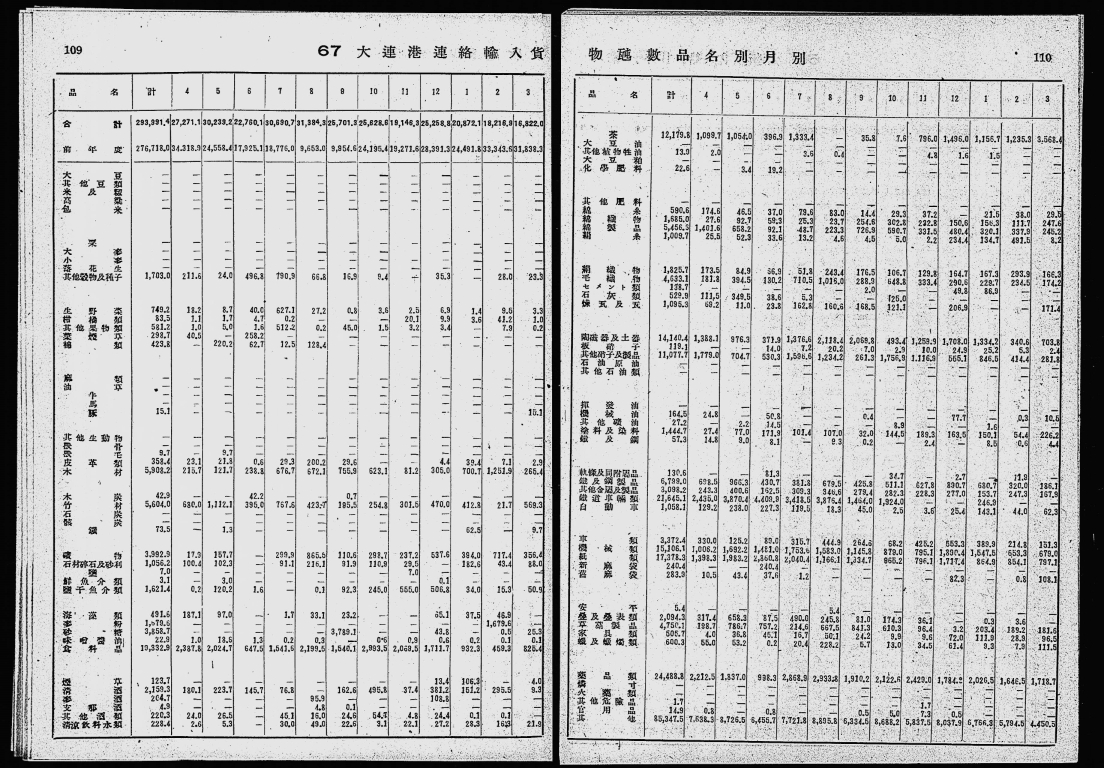 109
67 大連港連絡輸入貨
品名 計 4 5 6 7 8 9 10 11 12 1 2 3
合計 293,991.4 27,271.1 30,239.2 22,760.1 30,690.7 31,384.3 25,701.3 25,628.6 19,146.3 25,258.8 20,872.1 18,216.9 16,822.0
前年度 276,718.0 34,318.9 24,558.4 17,925.1 18,776.0 9,653.0 9,954.6 24,195.4 19,271.6 28,391.3 24,491.8 33,343.6 31,838.3
大豆 — — — — — — — — — — — — —
其他豆類 — — — — — — — — — — — — —
米及籾 — — — — — — — — — — — — —
高粱 — — — — — — — — — — — — —
包米 — — — — — — — — — — — — —
粟 — — — — — — — — — — — — —
大麥 — — — — — — — — — — — — —
小麥 — — — — — — — — — — — — —
落花生 — — — — — — — — — — — — —
其他穀物及種子 1,703.0 211.6 24.0 496.8 790.9 66.8 16.9 9.4 — 35.3 — 28.0 23.3
生野菜 749.2 18.2 8.7 40.0 627.1 27.2 0.8 3.6 2.5 6.9 1.4 9.5 3.3
柑橘類 83.5 1.1 1.7 4.7 0.2 — — — 20.1 9.9 3.6 41.2 1.0
其他果物類 581.2 1.0 5.0 1.6 512.2 0.2 45.0 1.5 3.2 3.4 — 7.9 0.2
葉煙草 298.7 40.5 — 258.2 — — — — — — — — —
棉類 423.8 — 220.2 62.7 12.5 128.4 — — — — — — —
麻類 — — — — — — — — — — — — —
油草 — — — — — — — — — — — — —
牛 — — — — — — — — — — — — —
馬 — — — — — — — — — — — — —
豚 15.1 — — — — — — — — — — — 15.1
其他生動物 — — — — — — — — — — — — —
獸骨 — — — — — — — — — — — — —
獸毛 9.7 — 9.7 — — — — — — — — — —
皮革類 358.4 23.1 21.8 0.6 29.3 200.2 29.6 — — — 39.4 7.1 2.9
木材 5,908.2 215.7 121.7 238.8 676.7 672.1 755.9 623.1 81.2 305.0 700.7 1,251.9 265.4
木炭 42.9 — — 42.2 — — 0.7 — — — — — —
竹材 5,604.0 680.0 1,112.1 395.0 767.6 423.7 195.5 254.8 301.5 470.0 412.8 21.7 569.3
石炭 — — — — — — — — — — — — —
骸炭 — — — — — — — — — — — — —
鑛 73.5 — 1.3 — — — — — — — 62.5 — 9.7
礦物 3,992.9 17.9 157.7 — 299.9 865.5 110.6 298.7 237.2 537.6 394.0 717.4 356.4
石材硝石及砂利 1,056.2 100.4 102.3 — 91.1 216.1 91.9 110.9 29.5 — 182.6 43.4 88.0
鹽 7.0 — — — — — — — 7.0 — — — —
鮮魚介類 3.1 — 3.0 — — — — — — 0.1 — — —
鹽干魚介類 1,621.4 0.2 120.2 1.6 — 0.1 92.3 245.0 555.0 506.8 34.0 15.3 50.9
海藻類 491.6 187.1 97.0 — 1.7 33.1 23.2 — — 65.1 37.5 46.9 —
麥粉 1,679.6 — — — — — — — — — — 1,679.6 —
砂糖 3,858.7 — — — — — 3,789.1 — — 43.8 — 0.5 25.3
味噌醬油 22.9 1.0 18.6 1.3 0.2 0.3 — 0.6 0.9 0.6 0.2 0.1 0.1
食料品 19,332.9 2,387.8 2,024.7 647.5 1,541.6 2,199.5 1,540.1 2,993.5 2,069.5 1,711.7 932.3 459.3 825.4
煙草 123.7 — — — — — — — — 13.4 106.3 — 4.0
清酒 2,159.3 180.1 223.7 145.7 76.8 — 162.6 495.8 37.4 381.2 151.2 295.5 9.3
麥酒 204.7 — — — — 95.9 — — — 108.8 — — —
支那酒 4.9 — — — — 4.8 0.1 — — — — — —
其他酒類 220.3 24.0 26.5 — 45.1 16.0 24.6 54.7 4.8 24.4 0.1 0.1 —
清涼飲料水類 228.4 2.6 5.3 — 30.0 49.0 22.6 3.1 22.1 27.2 28.3 16.3 21.9
物噸數品名別月別
110
品名 計 4 5 6 7 8 9 10 11 12 1 2 3
茶 12,179.8 1,099.7 1,054.0 396.9 1,333.4 — 35.8 7.6 796.0 1,496.0 1,156.7 1,235.3 3,568.4
大豆油 — — — — — — — — — — — — —
其他植物性油 13.9 2.0 — — 3.6 0.4 — — 4.8 1.6 1.5 — —
大豆粕 — — — — — — — — — — — — —
化學肥料 22.6 — 3.4 19.2 — — — — — — — — —
其他肥料 — — — — — — — — — — — — —
綿糸 590.6 174.6 46.5 37.0 79.6 83.0 14.4 29.3 37.2 — 21.5 38.0 29.5
綿織物 1,685.0 27.6 92.7 59.3 25.3 23.7 254.6 302.8 232.8 150.6 156.3 111.7 247.6
綿製品 5,456.3 1,401.6 658.2 92.1 48.7 223.3 726.9 590.7 331.5 480.4 320.1 337.9 245.2
絹糸 1,009.7 25.5 52.3 33.6 13.2 4.6 4.5 5.0 2.2 234.4 134.7 491.5 8.2
絹織物 1,825.7 173.5 84.9 66.9 51.8 243.4 176.5 106.7 129.8 164.7 167.3 293.9 166.3
毛織物 4,633.1 181.8 394.5 180.2 710.5 1,016.0 288.9 648.8 333.4 290.6 228.7 234.5 174.2
セメント類 138.7 — — — — — 2.0 — — 49.8 86.9 — —
石灰類 529.9 111.5 349.5 38.6 5.3 — — 25.0 — — — — —
煉瓦及瓦 1,095.3 69.2 11.0 23.8 162.8 160.6 168.5 121.1 — 206.9 — — 171.4
陶磁器及土器 14,140.4 1,388.1 976.3 371.9 1,376.6 2,118.4 2,069.8 493.4 1,259.9 1,708.0 1,334.2 340.6 703.8
板硝子 119.1 — — 14.0 7.2 20.2 7.0 2.9 10.0 24.9 25.2 5.3 2.4
其他硝子及製品 11,077.7 1,779.0 704.7 530.3 1,596.6 1,234.2 261.3 1,756.9 1,116.9 555.1 846.5 414.4 281.8
石油原油 — — — — — — — — — — — — —
其他石油類 — — — — — — — — — — — — —
揮發油 — — — — — — — — — — — — —
機械油 164.5 24.8 — 50.8 — — 0.4 — — 77.7 — 0.3 10.5
其他礦油 27.2 — 2.2 14.5 — — — 8.9 — — 1.6 — —
塗料及染料 1,444.7 27.4 77.0 171.9 101.4 107.0 32.0 144.5 189.3 163.5 150.1 54.4 226.2
鐵及鋼 57.3 14.8 9.0 8.1 — 9.3 0.2 — 2.4 — 8.5 0.6 4.4
軌條及同附屬品 130.6 — — 81.3 — — — 34.7 — 2.7 — 11.9 —
鐵及鋼製品 6,799.0 698.5 966.3 430.7 381.8 679.5 425.8 511.1 627.8 890.7 680.7 320.0 186.1
其他金屬及製品 3,098.2 243.3 400.6 162.5 309.3 346.6 279.4 282.3 228.3 277.0 153.7 247.3 167.9
鐵道車輛類 21,645.1 2,435.0 3,870.4 4,409.9 3,418.5 3,876.4 1,464.0 1,924.0 — — 246.9 — —
自動車 1,058.1 129.2 238.0 227.3 119.5 18.3 45.0 2.5 3.6 25.4 143.1 44.0 62.3
車類 3,372.4 330.0 125.2 89.0 315.7 444.9 264.6 68.2 425.2 553.3 389.9 214.8 151.3
機械類 15,106.1 1,006.2 1,692.2 1,481.0 1,753.6 1,583.0 1,145.8 879.0 795.1 1,890.4 1,547.5 653.3 679.0
紙類 17,378.3 1,398.3 1,983.2 2,860.8 2,040.4 1,166.1 1,334.7 865.2 796.1 1,717.4 864.9 854.1 797.1
新麻袋 240.4 — — 240.4 — — — — — — — — —
舊麻袋 283.9 10.5 43.4 37.6 1.2 — — — — 82.3 — 0.8 108.1
安平 5.4 — — — — 5.4 — — — — — — —
疊及疊表類 2,094.3 317.4 658.3 87.5 490.0 245.8 81.0 174.3 36.1 — 0.3 3.6 —
草蓙製品 4,750.1 198.7 786.7 757.2 214.6 667.5 841.3 610.3 96.4 3.2 203.4 189.2 181.6
家具類 505.7 4.0 36.8 45.1 16.7 50.1 24.2 9.9 9.6 72.0 111.9 28.9 96.5
蠟及蠟燭類 600.3 55.0 53.2 0.2 20.4 228.2 5.7 13.0 34.5 61.4 9.3 7.9 111.5
藥品類 24,488.8 2,212.5 1,837.0 998.3 2,868.9 2,933.8 1,910.2 2,122.6 2,429.0 1,784.2 2,026.5 1,646.5 1,718.7
燐寸 — — — — — — — — — — — — —
火藥類 — — — — — — — — — — — — —
其他危險品 1.7 — — — — — — — 1.7 — — — —
官用品 14.9 0.8 — 0.8 — — 0.5 5.0 7.3 0.5 — — —
其他 85,347.5 7,638.3 8,726.5 6,455.7 7,721.8 8,895.8 6,334.5 8,688.2 5,837.5 8,037.9 6,766.3 5,794.5 4,450.5